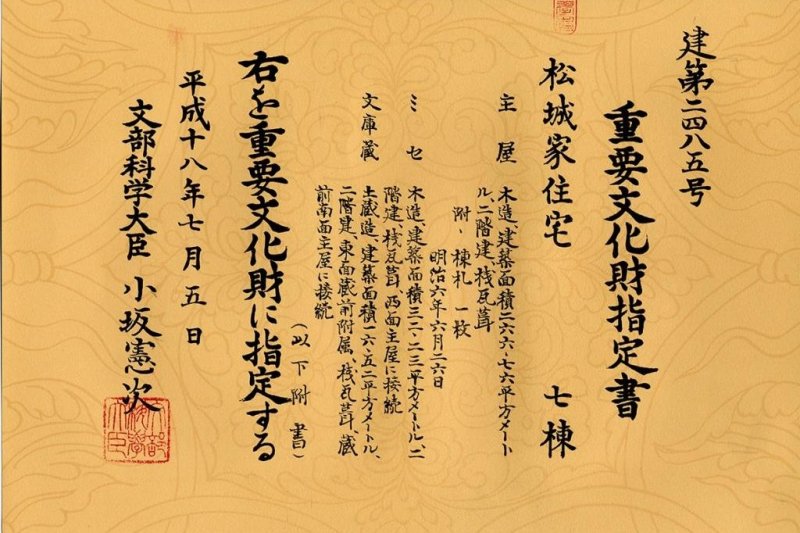 建第二四八五号
重要文化財指定書
松城家住宅 七棟
主屋 木造、建築面積二六六・七六平方メート
ル、二階建、桟瓦葺
附・棟札 一枚
明治六年六月二六日
ミセ 木造、建築面積三二・二三平方メートル、二
階建、桟瓦葺、西面主屋に接続
文庫蔵 土蔵造、建築面積一六・五二平方メートル、
二階建、東面蔵前附属、桟瓦葺、蔵
前南面主屋に接続
(以下附書)
右を重要文化財に指定する
平成十八年七月五日
文部科学大臣 小坂憲次